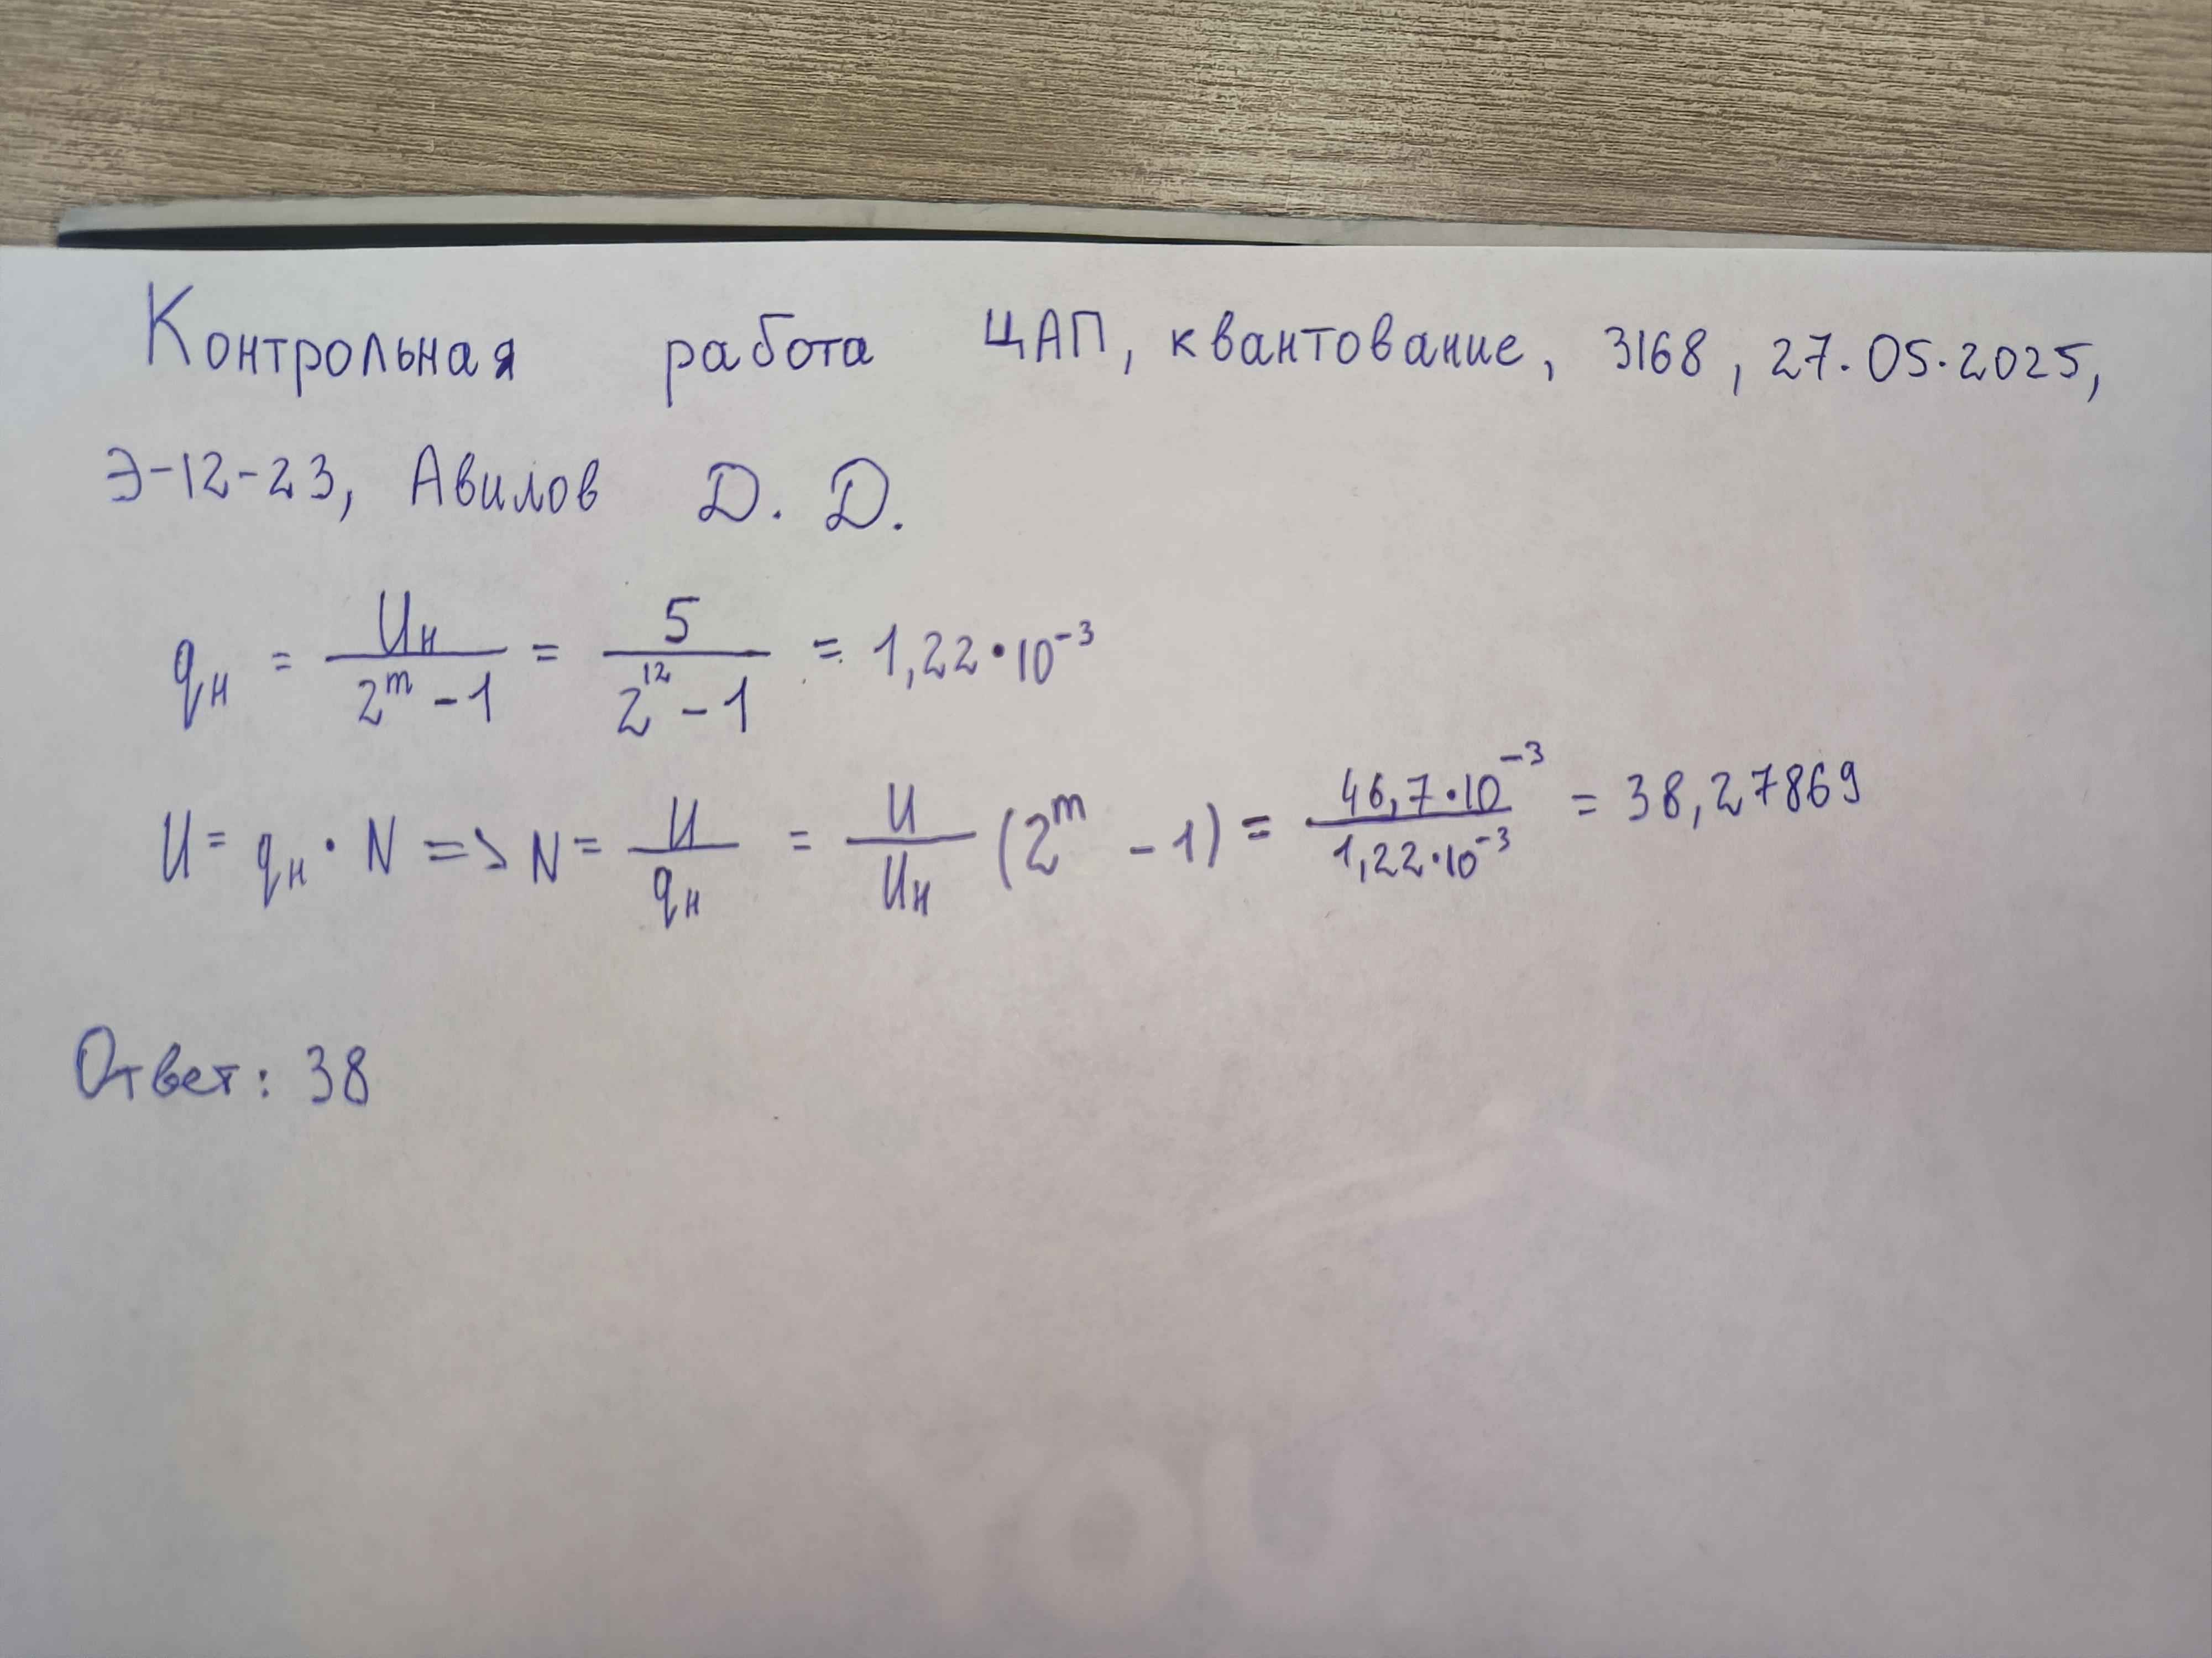 Контрольная работа ЦАП, квантование, 3168, 27.05.2025,
Э-12-23, Авилов Д. Д.
qн = Uн / (2^m - 1) = 5 / (2^12 - 1) = 1,22·10^-3
U = qн · N => N = U / qн = U / Uн (2^m - 1) = 46,7·10^-3 / 1,22·10^-3 = 38,27869
Ответ: 38
YOU